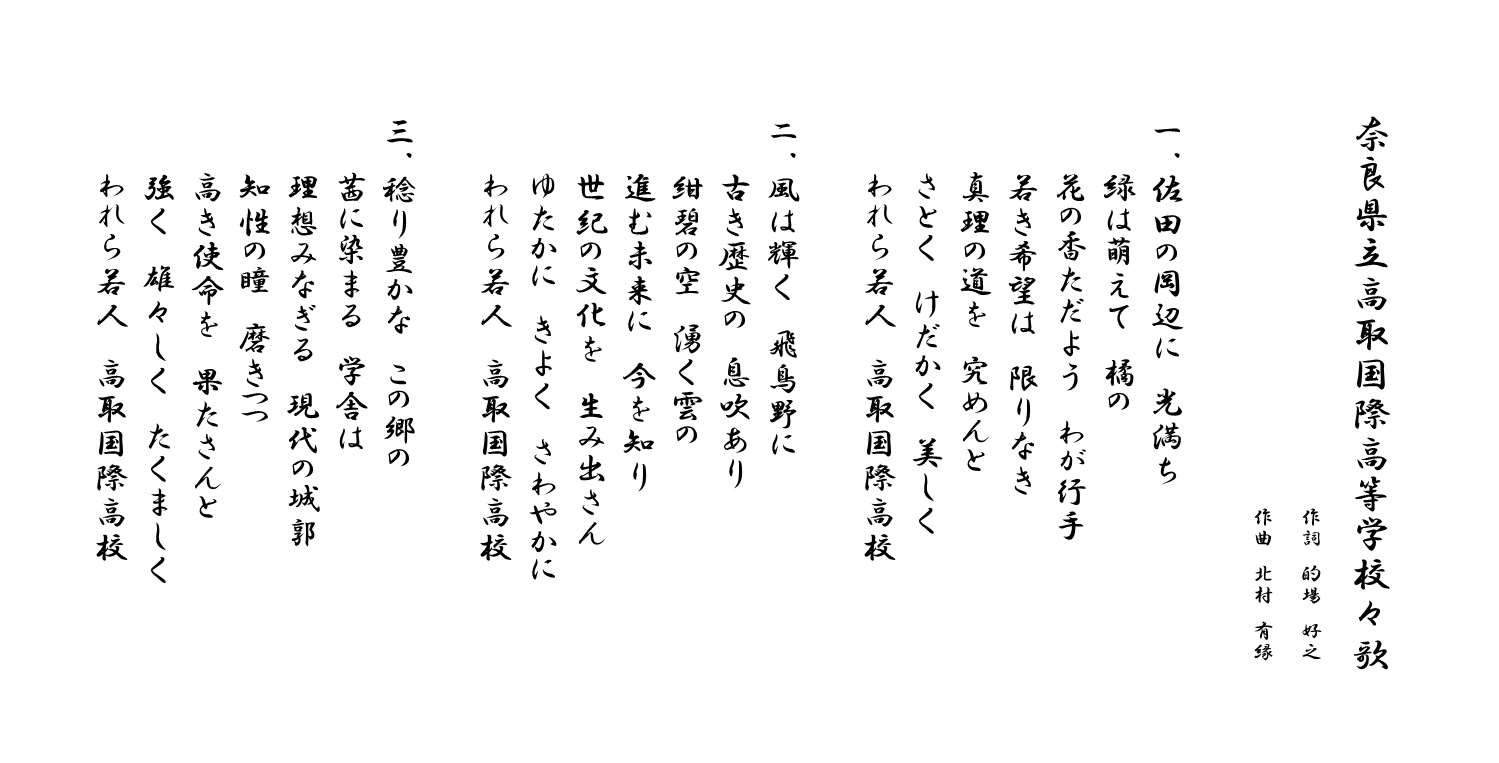 奈良県立高取国際高等学校々歌
作詞 的場 好之
作曲 北村 有縁
一、佐田の岡辺に 光満ち
緑は萌えて 橘の
花の香ただよう わが行手
若き希望は 限りなき
真理の道を 究めんと
さとく けだかく 美しく
われら若人 高取国際高校
二、風は輝く 飛鳥野に
古き歴史の 息吹あり
紺碧の空 湧く雲の
進む未来に 今を知り
世紀の文化を 生み出さん
ゆたかに きよく さわやかに
われら若人 高取国際高校
三、稔り豊かな この郷の
茜に染まる 学舎は
理想みなぎる 現代の城郭
知性の瞳 磨きつつ
高き使命を 果たさんと
強く 雄々しく たくましく
われら若人 高取国際高校